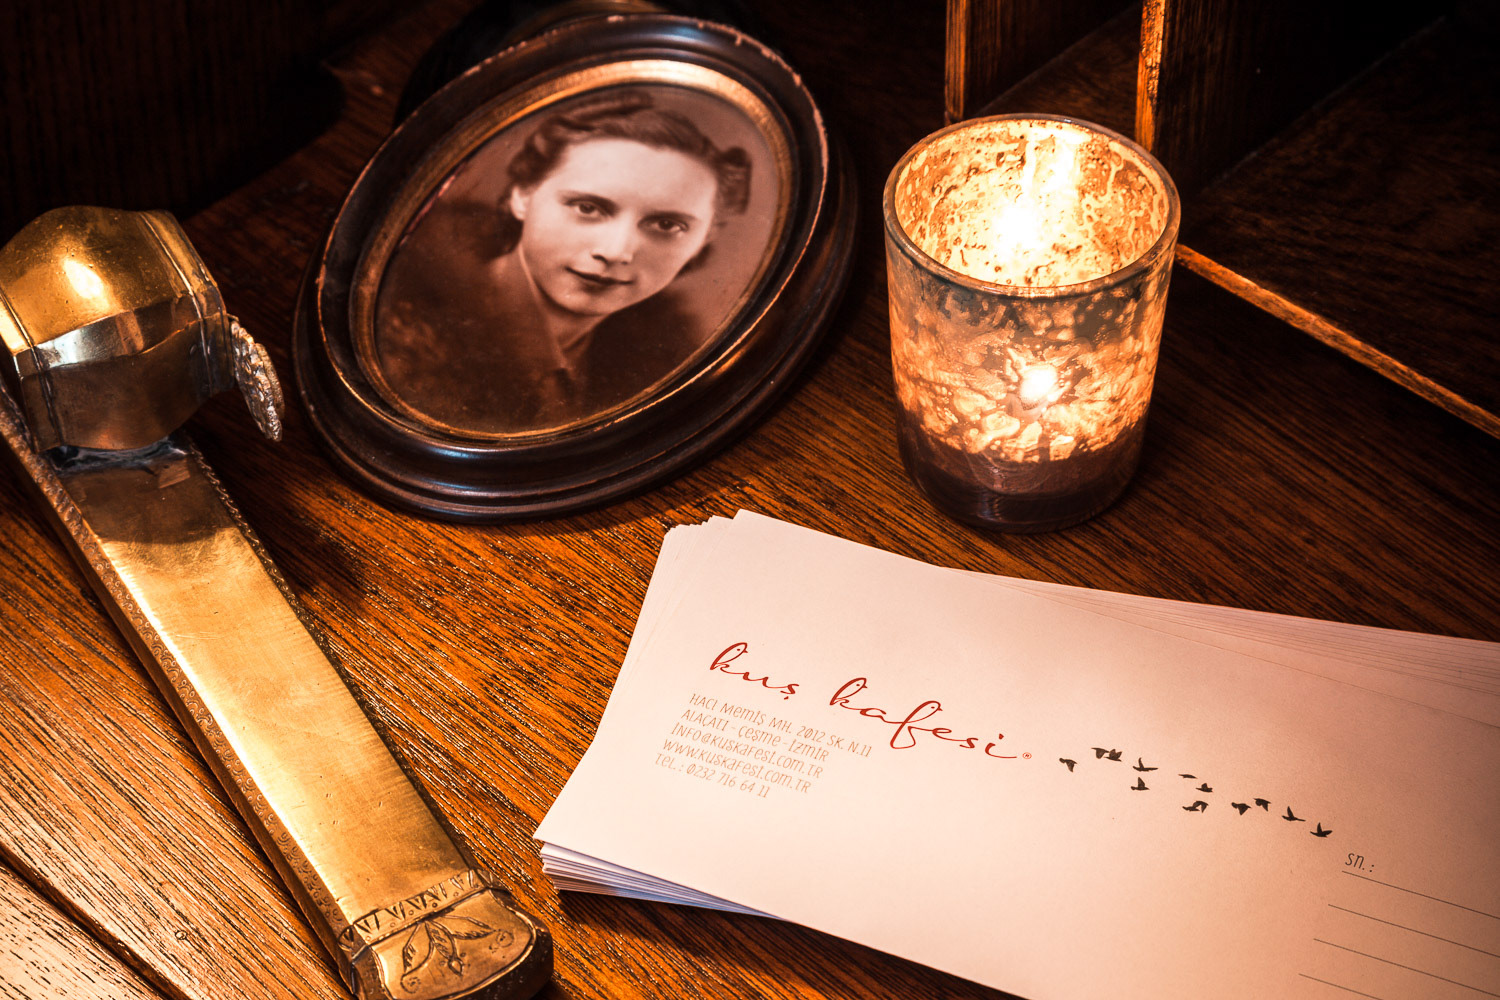 kuş kafesi®
HACI MEMİŞ MH. 2012 SK. N.11
ALAÇATI - ÇEŞME - İZMİR
İNFO@KUSKAFESİ.COM.TR
WWW.KUSKAFESİ.COM.TR
TEL.: 0232 716 64 11
SN.: